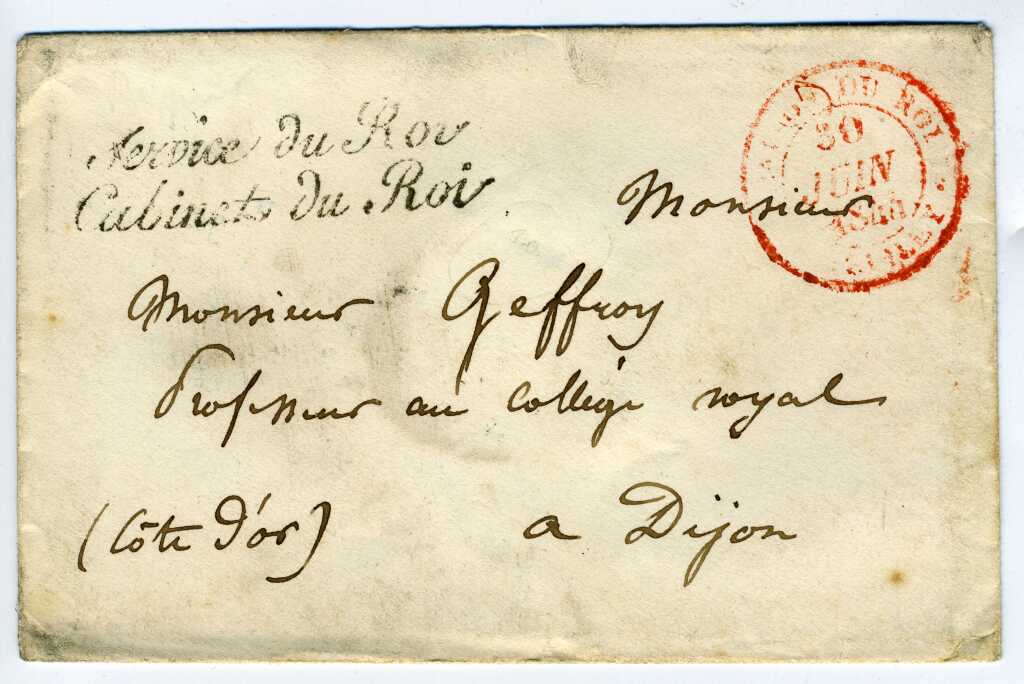 Service du Roi
Cabinet du Roi
MAISON DU ROI
30
JUIN
Monsieur
Monsieur Geffroy
Professeur au collége royal
(Côte d'or) a Dijon